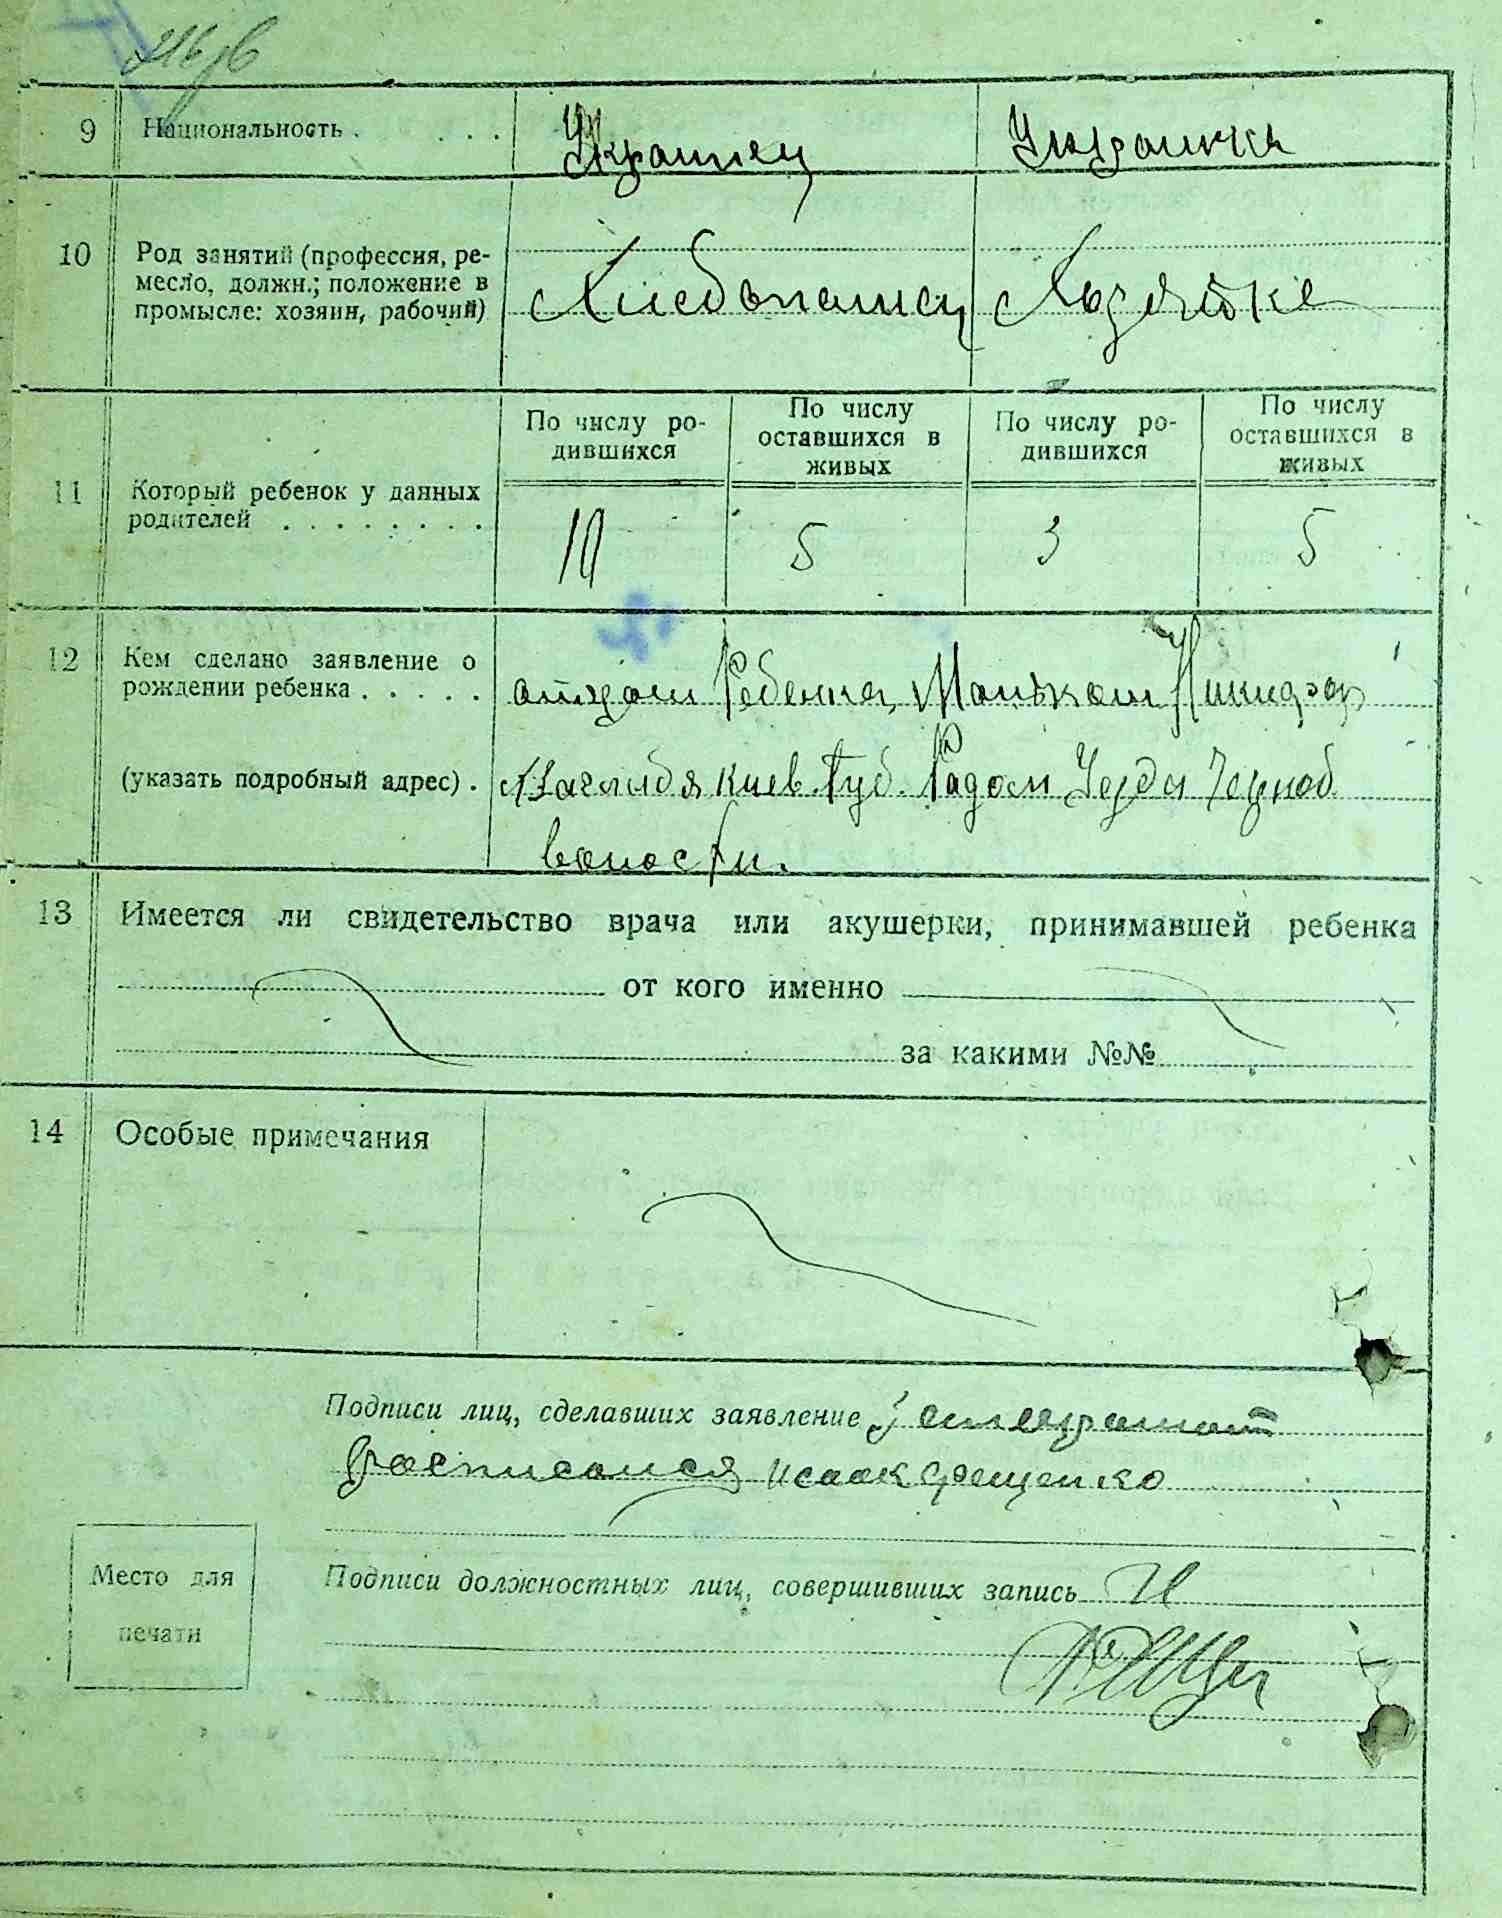 9 Национальность . . . . Украинец Украинка
10 Род занятий (профессия, ре-
месло, должн.; положение в
промысле: хозяин, рабочий) Хлебопашец Хозяйка
По числу ро-
дившихся
По числу
оставшихся в
живых
По числу ро-
дившихся
По числу
оставшихся в
живых
11 Который ребенок у данных
родителей . . . . . . . .
5 3 5
12 Кем сделано заявление о
рождении ребенка . . . . . отцом Ребенка,
(указать подробный адрес) . Киев. Губ. Радом Уезда Черноб.
волости.
13 Имеется ли свидетельство врача или акушерки, принимавшей ребенка
от кого именно
за какими №№
14 Особые примечания
Подписи лиц, сделавших заявление
Расписался Исаак Ращенко
Место для
печати
Подписи должностных лиц, совершивших запись